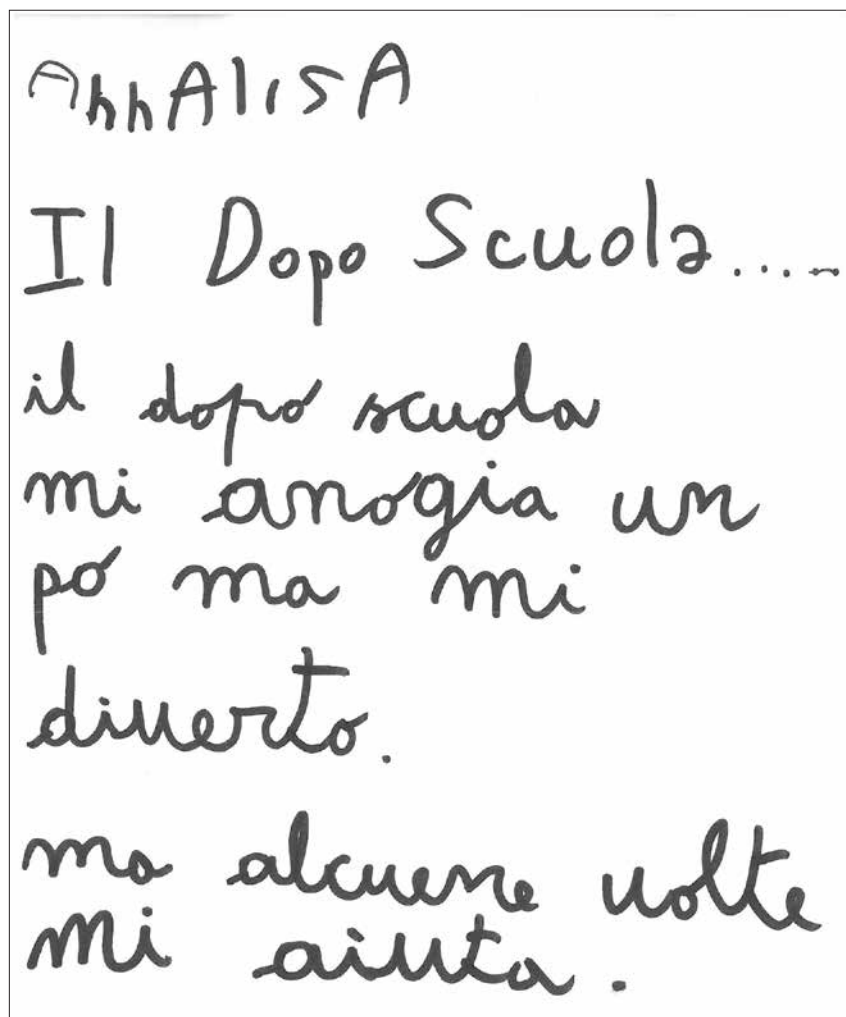 AnnAlisA
Il Dopo Scuola.....
il dopo scuola
mi anogia un
pó ma mi
diverto.
ma alcuene volte
mi aiuta.